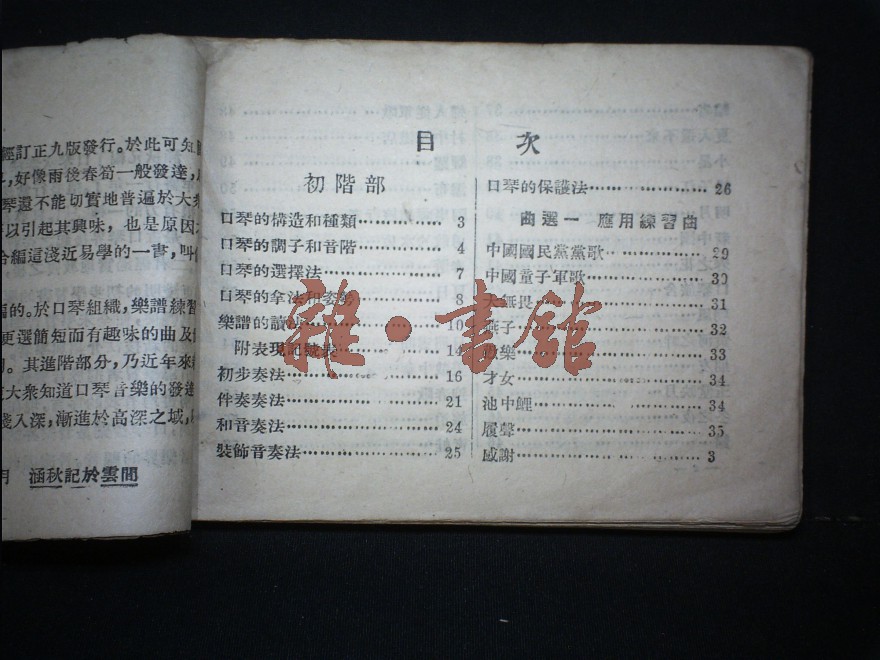 經訂正九版發行。於此可知
好像雨後春筍一般發達，
琴還不能切實地普遍於大衆
以引起其興味，也是原因
合編這淺近易學的一書，叫
的。於口琴組織，樂譜練習
更選簡短而有趣味的曲及
其進階部分，乃近年來
大衆知道口琴音樂的發達
淺入深，漸進於高深之域，
月 涵秋記於雲間
目 次
初階部
口琴的構造和種類 3
口琴的調子和音階 4
口琴的選擇法 7
口琴的拿法和姿勢 8
樂譜的讀法 10
附表現記號表 14
初步奏法 16
伴奏奏法 21
和音奏法 24
裝飾音奏法 25
口琴的保護法 26
曲選一 應用練習曲
中國國民黨黨歌 29
中國童子軍歌 30
大無畏 31
燕子 32
樂 33
才女 34
池中鯉 34
履聲 35
感謝 3
雜·書館